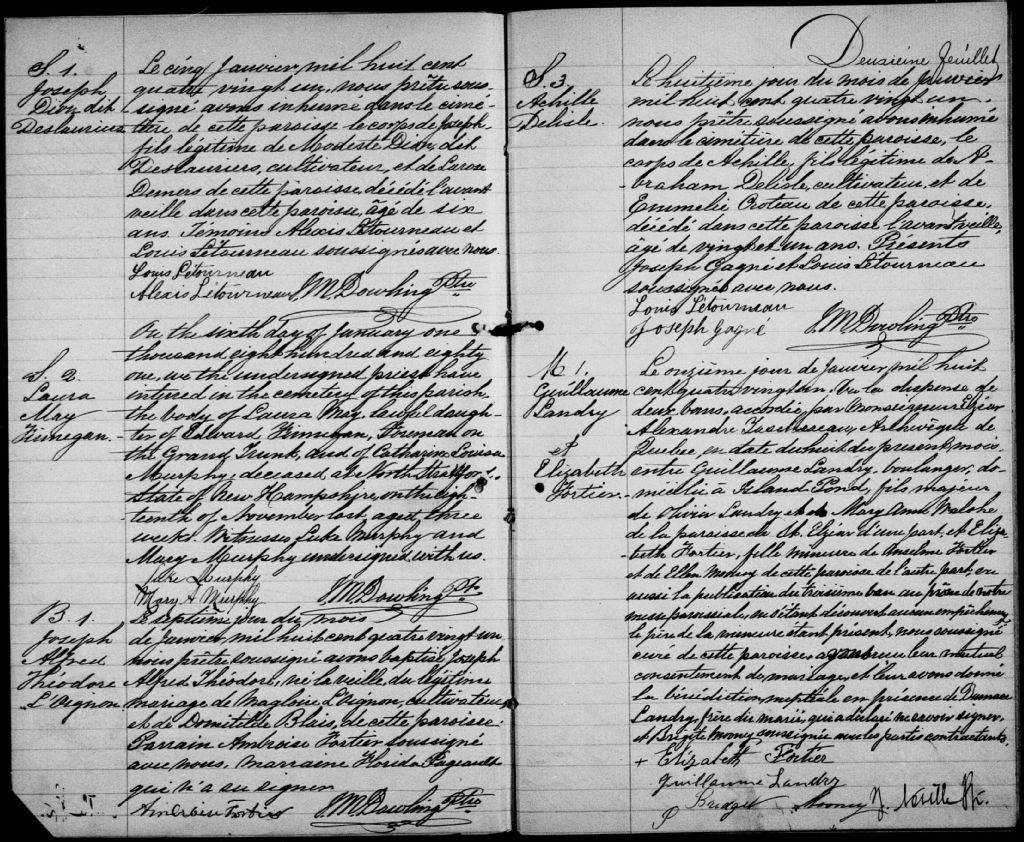 S. 1.
Joseph
Dion dit
Deslauriers
Le cinq Janvier, mil huit cent
quatre vingt un, nous prêtre sous-
signé avons inhumé dans le cime-
tière de cette paroisse le corps de Joseph,
fils légitime de Modeste Dion dit
Deslauriers, cultivateur, et de
Demers de cette paroisse, décédé l'avant
veille dans cette paroisse, âgé de six
ans. Temoins Alexis Létourneau et
Louis Létourneau soussignés avec nous.
Louis Létourneau
Alexis Létourneau J.M. Dowling Ptre
S. 2.
Laura
May
Finnegan.
On the sixth day of January one
thousand eight hundred and eighty
one, we the undersigned priest have
interred in the cemetery of this parish
the body of Laura May, lawful daugh-
ter of Edward Finnegan, Foreman on
the Grand Trunk, and of Catharine Louisa
Murphy, deceased at North Stratford,
State of New Hampshire, on the eigh-
teenth of November last, aged three
weeks. Witnesses Luke Murphy and
Mary Murphy undersigned with us.
Luke Murphy
Mary A Murphy J.M. Dowling Ptr.
B. 1.
Joseph
Alfred
Théodore
L'Vignon
Le septième jour du mois
de Janvier, mil huit cent quatre vingt un
nous prêtre soussigné avons baptisé Joseph
Alfred Théodore, né la veille du légitime
mariage de Magloire L'Vignon, cultivateur
et de Domitilde Blais, de cette paroisse.
Parrain Ambroise Fortier soussigné
avec nous. Marraine Florida
qui n'a su signer.
Ambroise Fortier J.M. Dowling Ptre
Deuxième feuillet
S. 3.
Achille
Delisle.
Le huitième jour du mois de Janvier
mil huit cent quatre vingt un.
nous prêtre soussigné avons inhumé
dans le cimetière de cette paroisse, le
corps de Achille, fils légitime de A-
braham Delisle, cultivateur, et de
Emmelie Croteau de cette paroisse,
décédé dans cette paroisse l'avant veille,
âgé de vingt et un ans. Présents
Joseph Gagné et Louis Létourneau
soussignés avec nous.
Louis Létourneau
Joseph Gagné J.M. Dowling Ptre
M 1.
Guillaume
Landry
et
Elizabeth
Fortier
Le onzième jour de Janvier, mil huit
cent quatre vingt un. Vu la dispense de
deux bans, accordée par Monseigneur Elzéar
Alexandre Taschereau, Archevêque de
Québec, en date du huit du présent mois
entre Guillaume Landry, boulanger, do-
micilié à Island Pond, fils majeur
de Olivier Landry et de Mary Anne Malone
de la paroisse de St. Elzéar d'une part, et Eliza-
beth Fortier, fille mineure de Anselme Fortier
et de Ellen Mooney de cette paroisse de l'autre part; vu
aussi la publication du troisième ban au prône de notre
messe paroissiale, ne s'étant découvert aucun empêchement,
le père de la mineure étant présent, nous soussigné
curé de cette paroisse, avons reçu leur mutuel
consentement de mariage, et leur avons donné
la bénédiction nuptiale en présence de Damase
Landry, frère du marié, qui a déclaré ne savoir signer,
et Brigite Mooney soussignée avec les parties contractantes.
+ Elizabeth Fortier
Guillaume Landry
Bridget Mooney J. Neville Ptr.